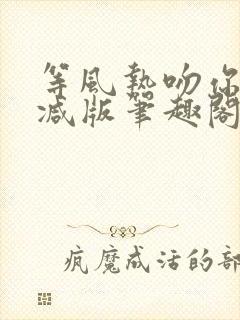 等風熱吻你
减版筆趣閣
疯魔成活的部